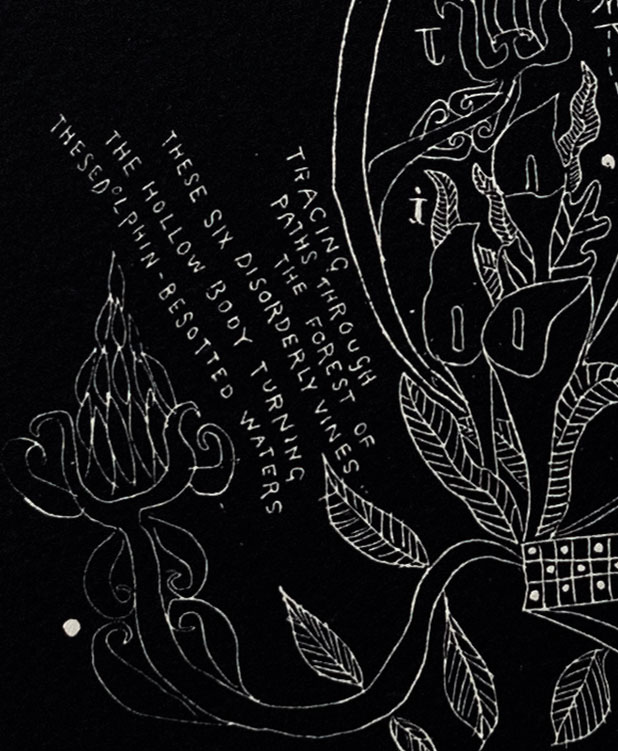 TRACING
PATHS THROUGH
THE FOREST OF
THESE SIX DISORDERLY VINES
THE HOLLOW BODY TURNING
THESEDOLPHIN-BESOTTED WATERS
T
i